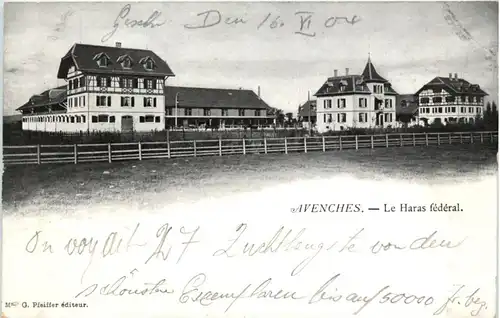 Gesch. Den 16. VI 04
AVENCHES. — Le Haras fédéral.
On voyait 27 Zuchthengste von den
schönsten Exemplaren bis auf 50000 fr. bez.
Mson G. Pfeiffer éditeur.